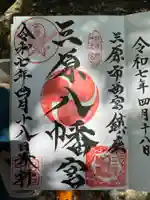 令和七年四月十八日
三原市西宮鎮座
三原八幡宮
令和七年四月十八日奉拝